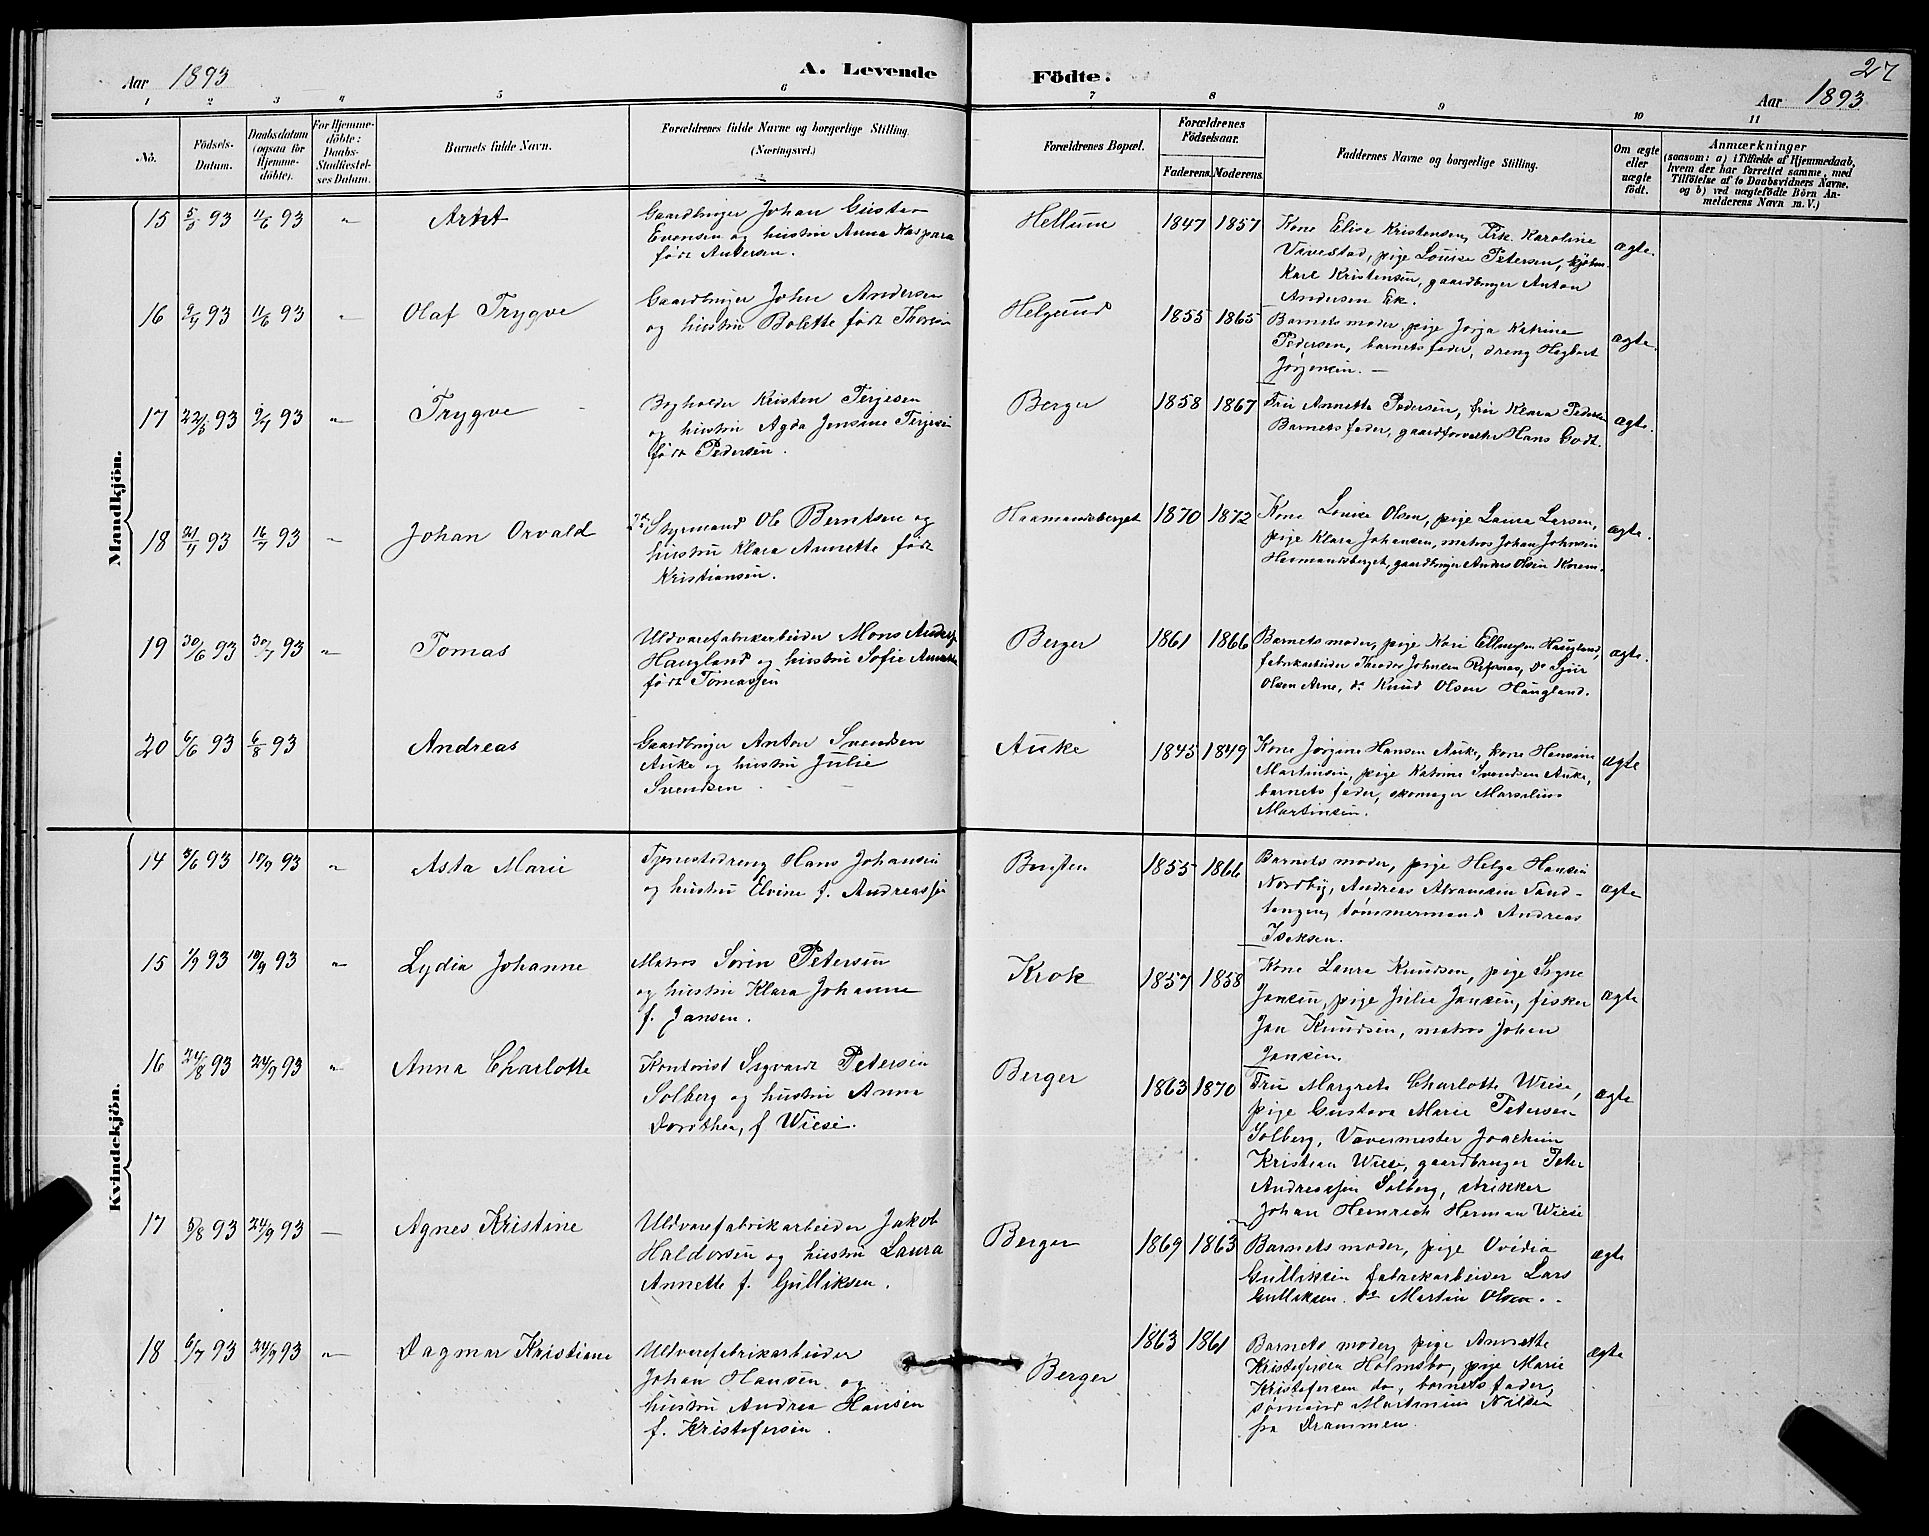 Aar 1893
A. Levende
Födte.
27
Aar 1893
1 2 3 4 5 6 7 8 9 10 11
No.
Födsels-Datum.
Daabsdatum (ogsaa for Hjemme-döbte).
For Hjemme-döbte: Daabs-Stadfæstel-ses Datum.
Barnets fulde Navn.
Forældrenes fulde Navne og borgerlige Stilling.
(Næringsvei.)
Forældrenes Bopæl.
Forældrenes Födselsaar.
Faderens. Moderens.
Faddernes Navne og borgerlige Stilling.
Om ægte eller uægte födt.
Anmærkninger
(saasom: a) i Tilfælde af Hjemmedaab,
hvem der har forrettet samme, med
Tilföielse af to Daabsvidners Navne.
og b) ved uægtefödte Börn An-
melderens Navn m. V.)
Mandkjön.
15 5/3 93 11/6 93 " Arnt
Gaardbruger Johan Gustav
Evensen og hustru Anna Kaspara
født Andersen.
Hellum 1847 1857
Kone Elise Kristensen, Frk. Karoline
Vivestad, pige Louise Petersen, kjøbm.
Karl Kristensen, gaardbruger Anton
Andersen Ek.
ægte.
16 2/4 93 11/6 93 " Olaf Trygve
Gaardbruger John Andersen
og hustru Bolette født Thorsen
Helgeund 1855 1865
Barnets moder, pige Jørga Katrine
Pedersen, barnets fader, dreng Hagbart
Jørgensen. —
ægte.
17 22/5 93 2/7 93 " Trygve
Bogholder Kristen Terjesen
og hustru Agda Jensine Terjesen
født Pedersen.
Berger 1858 1867
Fru Annette Pedersen, fru Klara Pedersen
Barnets fader, gaardforvalter Hans Godt.
ægte.
18 21/4 93 16/7 93 " Johan Orvald
2den Styrmand Ole Berntsen og
hustru Klara Annette født
Kristiansen.
Haamandsberget 1870 1872
Kone Louise Olsen, pige Laura Larsen,
pige Klara Johansen, matros Johan Johnsen
Hermandsberget, gaardbruger Anders Olsen Korem.
ægte.
19 30/6 93 30/7 93 " Tomas
Uldvarefabrikarbeider Mons Anders
Haugland og hustru Sofie Amalie
født Tomassen
Berger 1861 1866
Barnets moder, pige Kari Ellingsen Haugland,
fabrikarbeider Teodor Johnsen Refsnæs, do Sjur
Olsen Arne, do Knud Olsen Haugland.
ægte.
20 6/6 93 6/8 93 Andreas
Gaardbruger Anton Svendsen
Auke og hustru Julie
Svendsen
Auke 1845 1849
Kone Jørgine Hansen Auke, kone Hansine
Martinsen, pige Katrine Svendsen Auke,
barnets fader, skomager Marselius
Martinsen.
ægte
Kvindekjön.
14 3/6 93 10/9 93 " Asta Marie
Tjenestedreng Hans Johansen
og hustru Elvine f. Andreassen
Bergsten 1855 1866
Barnets moder, pige Helga Hansen
Nordby, Andreas Abramsen Sand-
tangen, tømmermand Andreas
Isaksen.
ægte
15 1/7 93 10/9 93 " Lydia Johanne
Matros Søren Petersen
og hustru Klara Johanne
f. Jansen.
Krok 1857 1858
Kone Laura Knudsen, pige Signe
Jansen, pige Julie Jansen, fisker
Jan Knudsen, matros Johan
Jansen.
ægte
16 24/8 93 24/9 93 " Anna Charlotte
Kontorist Sigvardt Petersen
Solberg og hustru Anna
Dorothea, f Wiese.
Berger 1863 1870
Fru Margrete Charlotte Wiese,
pige Gustava Marie Petersen
Solberg, Vævermester Joachim
Kristian Wiese, gaardbruger Peter
Andreassen Solberg, strikker
Johan Heinrich Herman Wiese
ægte
17 5/8 93 24/9 93 — Agnes Kristine
Uldvarefabrikarbeider Jakob
Haldorsen og hustru Laura
Annette f. Gulliksen.
Berger 1869 1863
Barnets moder, pige Ovidia
Gulliksen fabrikarbeider Lars
Gulliksen. do Martin Olsen.
ægte
18 6/7 93 24/9 93 " Dagmar Kristiane
Uldvarefabrikarbeider
Johan Hansen og
hustru Andrea Hansen
f. Kristofersen.
Berger 1863 1861
Barnets moder, pige Annette
Kristofersen Holmsbo, pige Marie
Kristofersen do, barnets fader,
sømand Martinius Nilsen
fra Drammen.
ægte